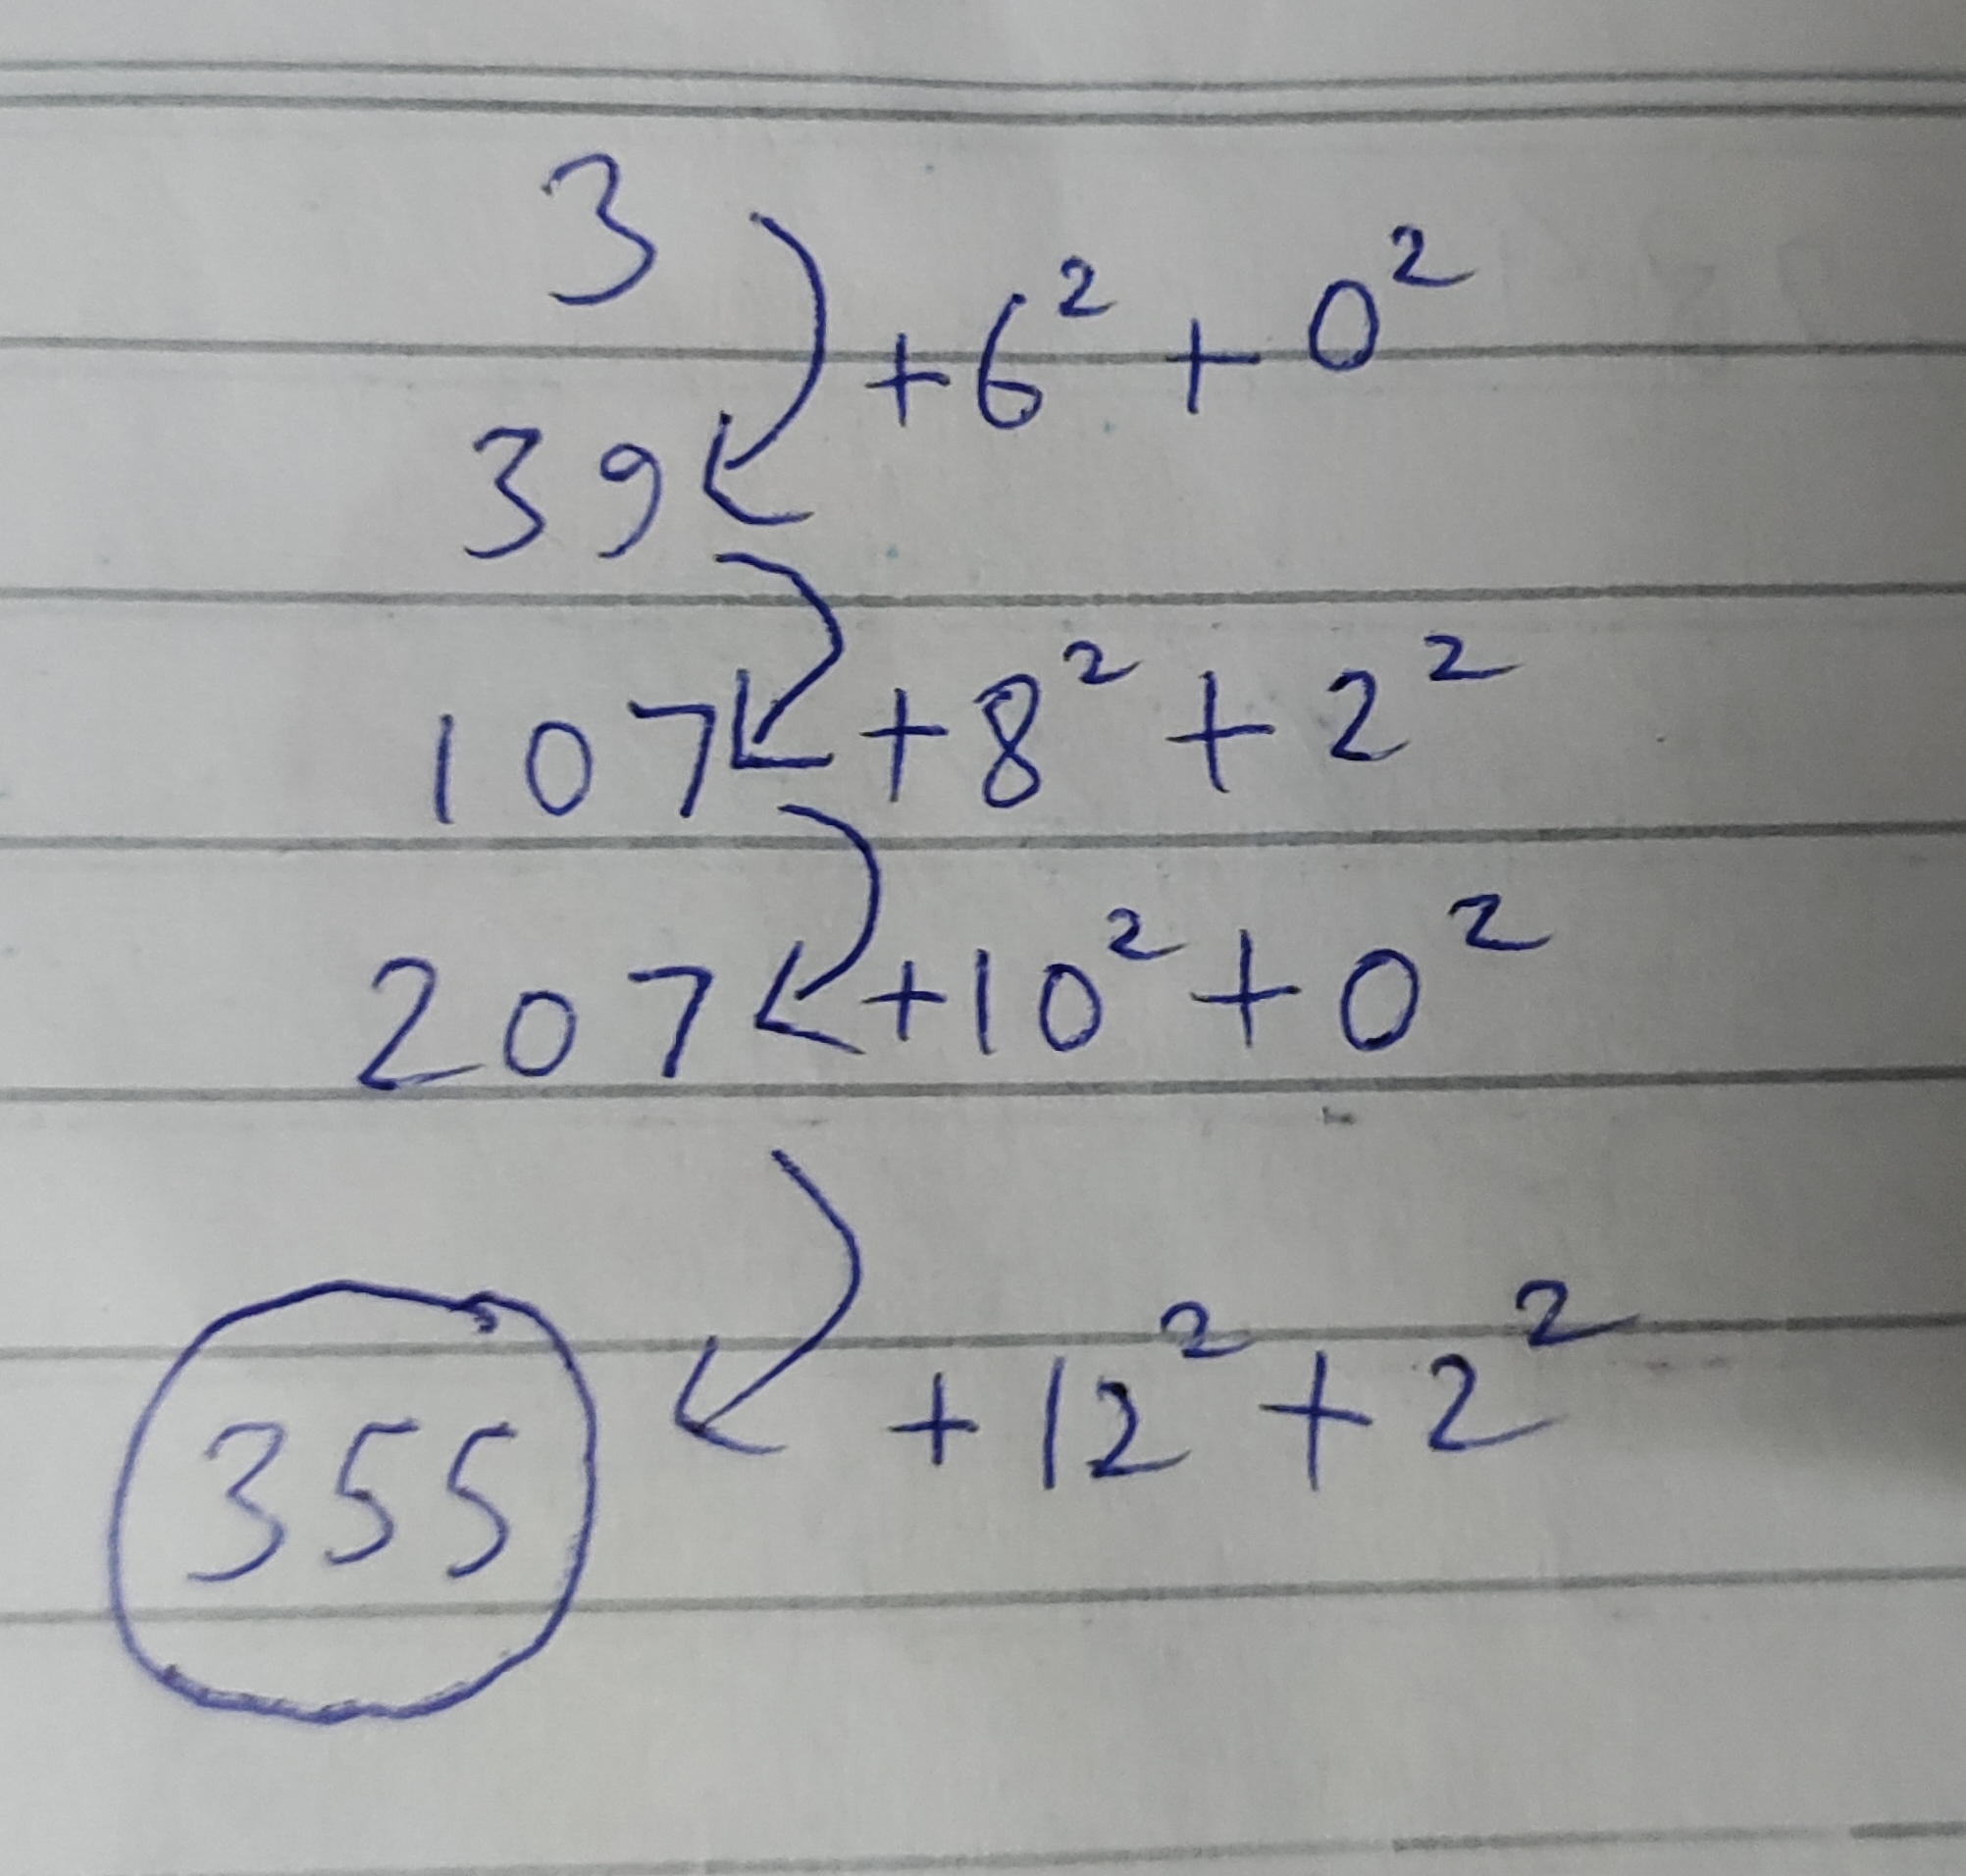 3
+6² + 0²
39
107 +8² + 2²
207 +10² + 0²
355 +12² + 2²